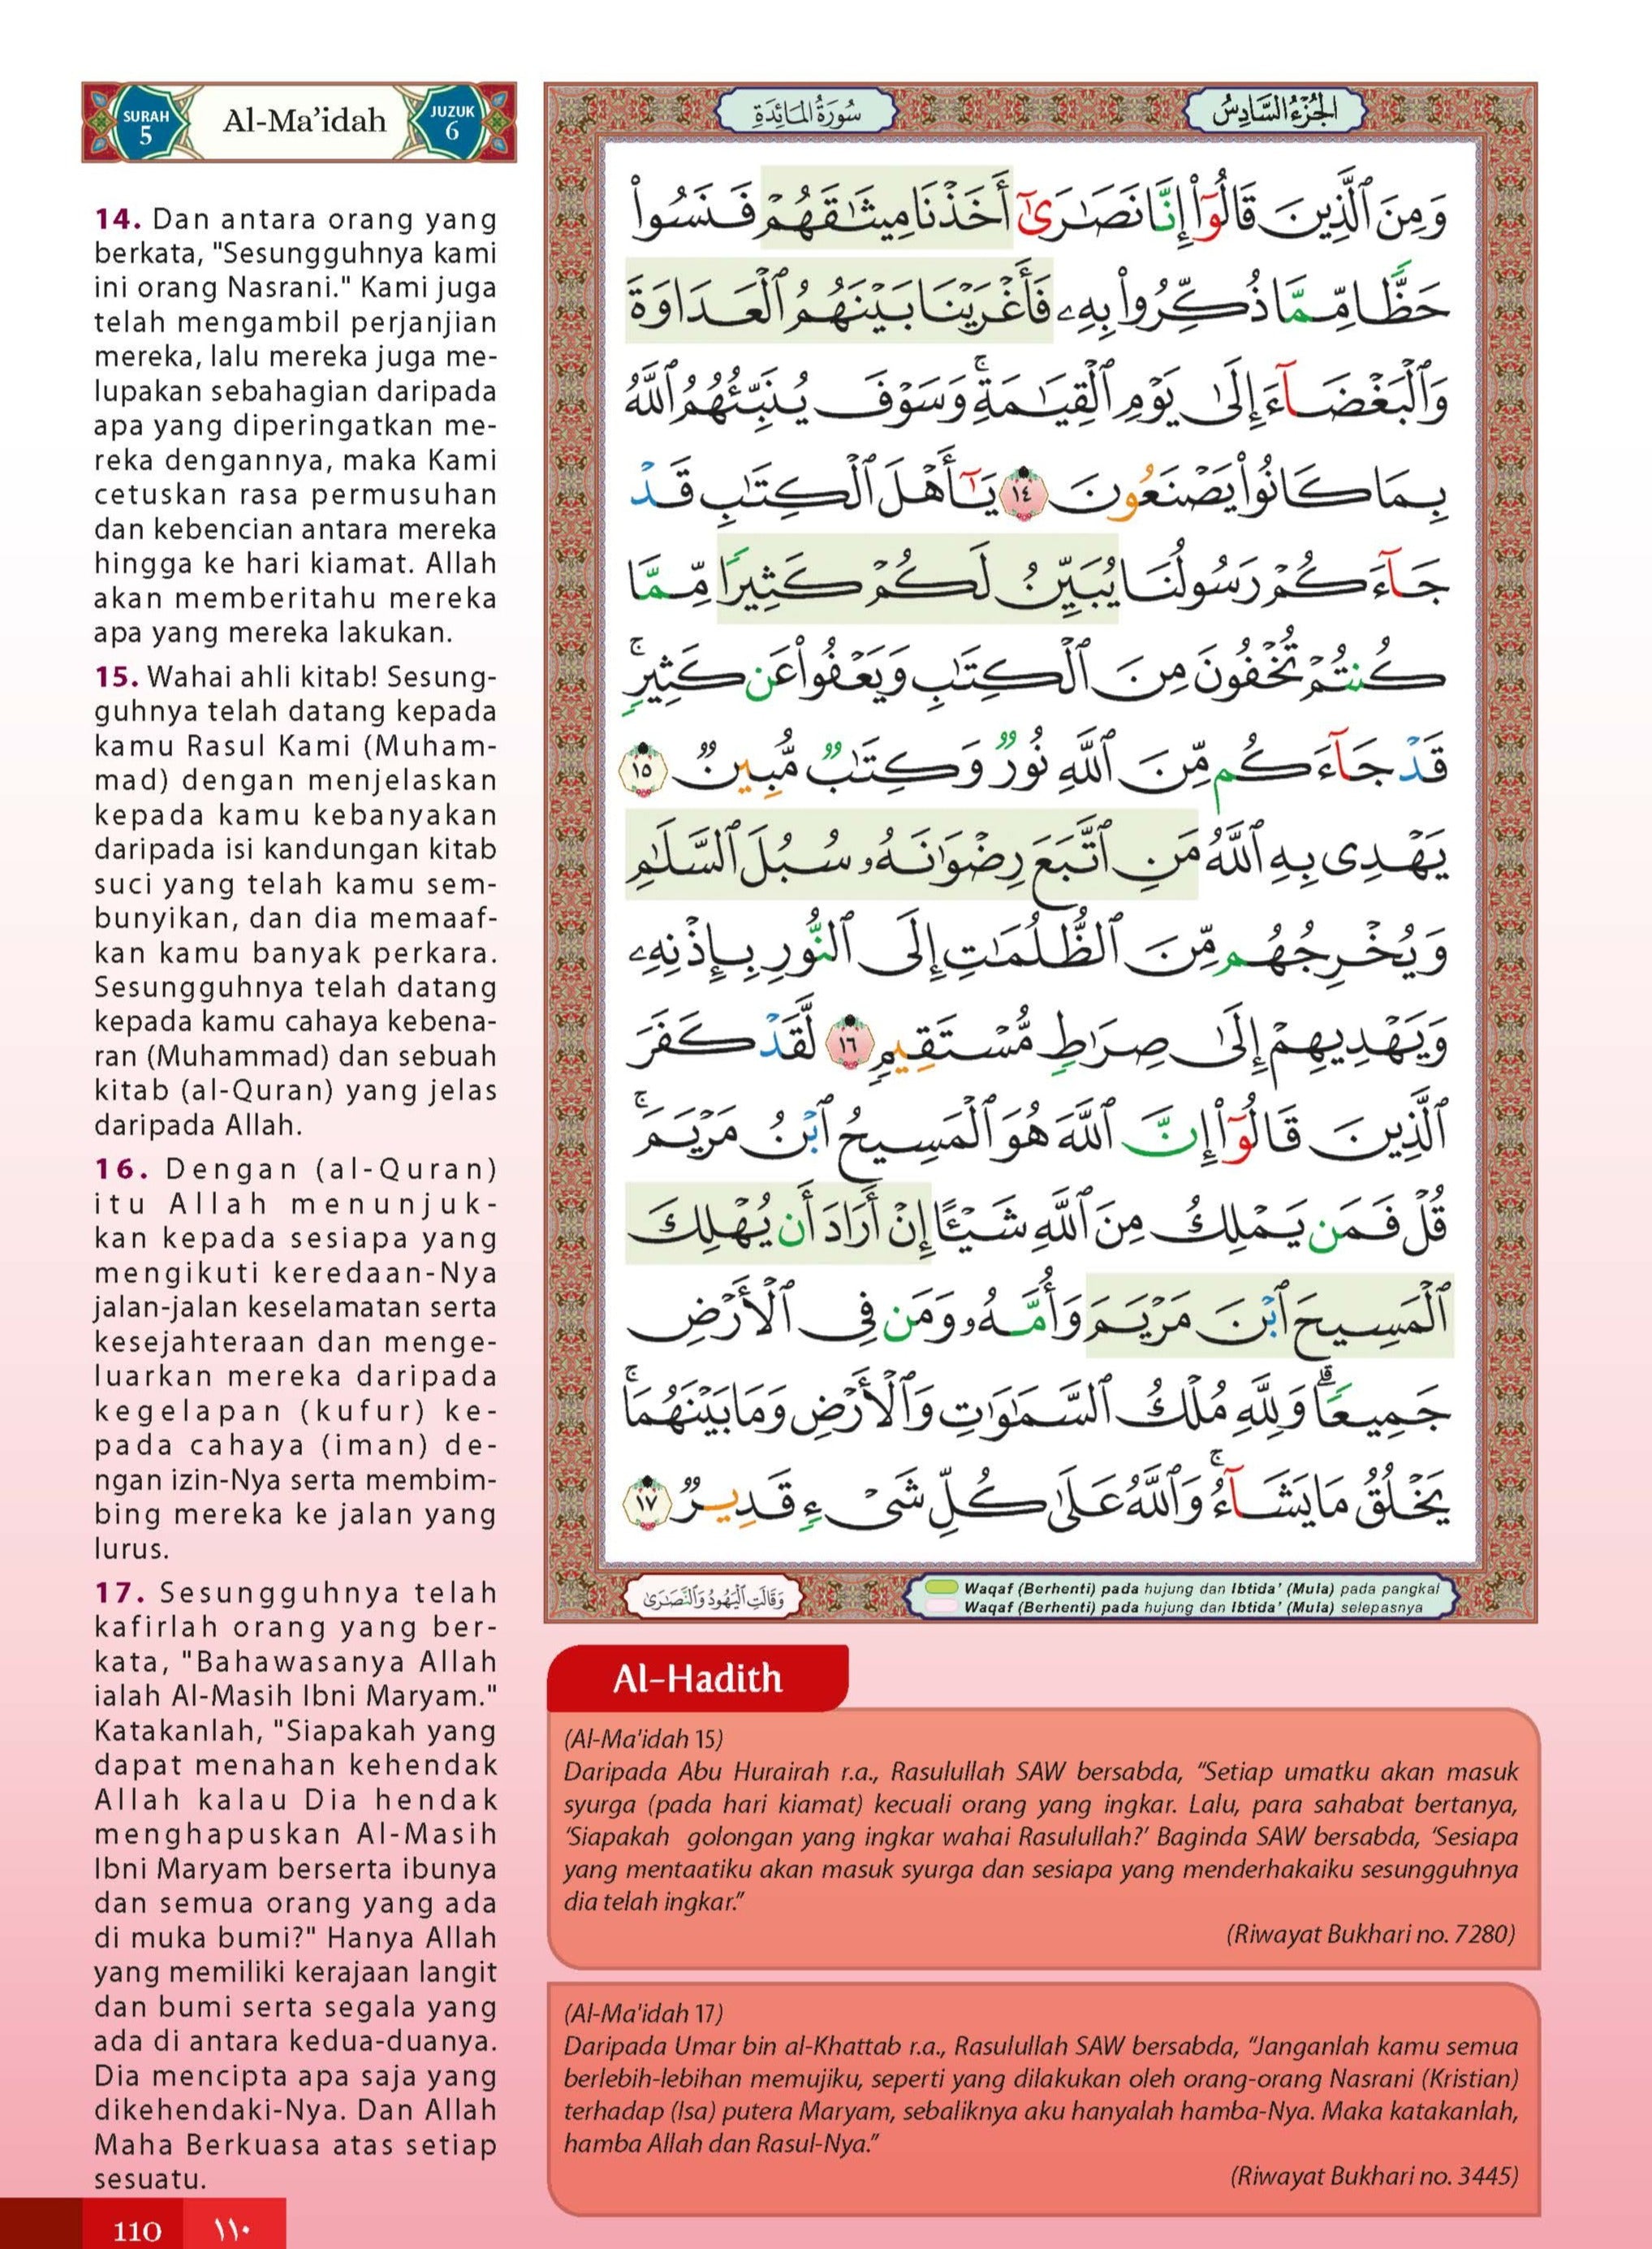 SURAH
5
Al-Ma’idah
JUZUK
6
14. Dan antara orang yang
berkata, "Sesungguhnya kami
ini orang Nasrani." Kami juga
telah mengambil perjanjian
mereka, lalu mereka juga me-
lupakan sebahagian daripada
apa yang diperingatkan me-
reka dengannya, maka Kami
cetuskan rasa permusuhan
dan kebencian antara mereka
hingga ke hari kiamat. Allah
akan memberitahu mereka
apa yang mereka lakukan.
15. Wahai ahli kitab! Sesung-
guhnya telah datang kepada
kamu Rasul Kami (Muham-
mad) dengan menjelaskan
kepada kamu kebanyakan
daripada isi kandungan kitab
suci yang telah kamu sem-
bunyikan, dan dia memaaf-
kan kamu banyak perkara.
Sesungguhnya telah datang
kepada kamu cahaya kebena-
ran (Muhammad) dan sebuah
kitab (al-Quran) yang jelas
daripada Allah.
16. Dengan (al-Quran)
itu Allah menunjuk-
kan kepada sesiapa yang
mengikuti keredaan-Nya
jalan-jalan keselamatan serta
kesejahteraan dan menge-
luarkan mereka daripada
kegelapan (kufur) ke-
pada cahaya (iman) de-
ngan izin-Nya serta membim-
bing mereka ke jalan yang
lurus.
17. Sesungguhnya telah
kafirlah orang yang ber-
kata, "Bahawasanya Allah
ialah Al-Masih Ibni Maryam."
Katakanlah, "Siapakah yang
dapat menahan kehendak
Allah kalau Dia hendak
menghapuskan Al-Masih
Ibni Maryam berserta ibunya
dan semua orang yang ada
di muka bumi?" Hanya Allah
yang memiliki kerajaan langit
dan bumi serta segala yang
ada di antara kedua-duanya.
Dia mencipta apa saja yang
dikehendaki-Nya. Dan Allah
Maha Berkuasa atas setiap
sesuatu.
الجُزْءُ السَّادِسُ
سُورَةُ المَائِدَةِ
وَمِنَ ٱلَّذِينَ قَالُوٓا۟ إِنَّا نَصَـٰرَىٰٓ أَخَذْنَا مِيثَـٰقَهُمْ فَنَسُوا۟
حَظًّا مِّمَّا ذُكِّرُوا۟ بِهِۦ فَأَغْرَيْنَا بَيْنَهُمُ ٱلْعَدَاوَةَ
وَٱلْبَغْضَآءَ إِلَىٰ يَوْمِ ٱلْقِيَـٰمَةِ ۚ وَسَوْفَ يُنَبِّئُهُمُ ٱللَّهُ
بِمَا كَانُوا۟ يَصْنَعُونَ ١٤ يَـٰٓأَهْلَ ٱلْكِتَـٰبِ قَدْ
جَآءَكُمْ رَسُولُنَا يُبَيِّنُ لَكُمْ كَثِيرًا مِّمَّا
كُنتُمْ تُخْفُونَ مِنَ ٱلْكِتَـٰبِ وَيَعْفُوا۟ عَن كَثِيرٍ ۚ
قَدْ جَآءَكُم مِّنَ ٱللَّهِ نُورٌ وَكِتَـٰبٌ مُّبِينٌ ١٥
يَهْدِى بِهِ ٱللَّهُ مَنِ ٱتَّبَعَ رِضْوَٰنَهُۥ سُبُلَ ٱلسَّلَـٰمِ
وَيُخْرِجُهُم مِّنَ ٱلظُّلُمَـٰتِ إِلَى ٱلنُّورِ بِإِذْنِهِۦ
وَيَهْدِيهِمْ إِلَىٰ صِرَٰطٍ مُّسْتَقِيمٍ ١٦ لَّقَدْ كَفَرَ
ٱلَّذِينَ قَالُوٓا۟ إِنَّ ٱللَّهَ هُوَ ٱلْمَسِيحُ ٱبْنُ مَرْيَمَ ۚ
قُلْ فَمَن يَمْلِكُ مِنَ ٱللَّهِ شَيْـًٔا إِنْ أَرَادَ أَن يُهْلِكَ
ٱلْمَسِيحَ ٱبْنَ مَرْيَمَ وَأُمَّهُۥ وَمَن فِى ٱلْأَرْضِ
جَمِيعًا ۗ وَلِلَّهِ مُلْكُ ٱلسَّمَـٰوَٰتِ وَٱلْأَرْضِ وَمَا بَيْنَهُمَا ۚ
يَخْلُقُ مَا يَشَآءُ ۚ وَٱللَّهُ عَلَىٰ كُلِّ شَىْءٍ قَدِيرٌ ١٧
وَقَالَتِ ٱلْيَهُودُ وَٱلنَّصَـٰرَىٰ
Waqaf (Berhenti) pada hujung dan Ibtida’ (Mula) pada pangkal
Waqaf (Berhenti) pada hujung dan Ibtida’ (Mula) selepasnya
Al-Hadith
(Al-Ma'idah 15)
Daripada Abu Hurairah r.a., Rasulullah SAW bersabda, “Setiap umatku akan masuk
syurga (pada hari kiamat) kecuali orang yang ingkar. Lalu, para sahabat bertanya,
‘Siapakah golongan yang ingkar wahai Rasulullah?’ Baginda SAW bersabda, ‘Sesiapa
yang mentaatiku akan masuk syurga dan sesiapa yang menderhakaiku sesungguhnya
dia telah ingkar.”
(Riwayat Bukhari no. 7280)
(Al-Ma'idah 17)
Daripada Umar bin al-Khattab r.a., Rasulullah SAW bersabda, “Janganlah kamu semua
berlebih-lebihan memujiku, seperti yang dilakukan oleh orang-orang Nasrani (Kristian)
terhadap (Isa) putera Maryam, sebaliknya aku hanyalah hamba-Nya. Maka katakanlah,
hamba Allah dan Rasul-Nya.”
(Riwayat Bukhari no. 3445)
110 ١١٠